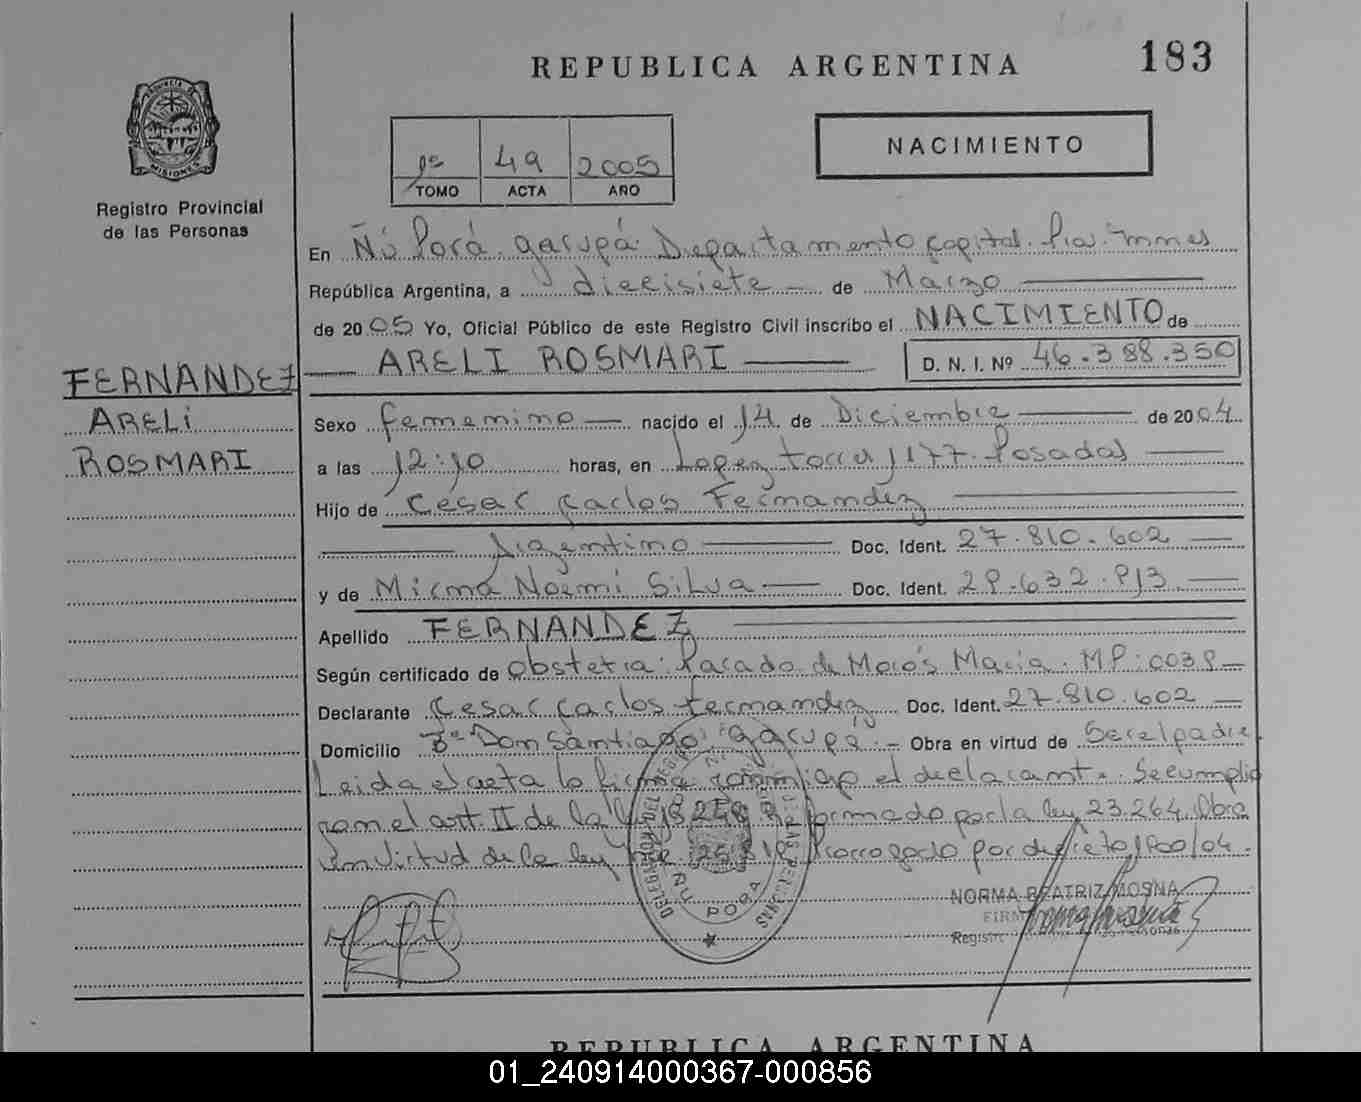 REPUBLICA ARGENTINA
183
PROVINCIA DE
MISIONES
Registro Provincial
de las Personas
1º 49 2005
TOMO ACTA AÑO
NACIMIENTO
En Ñú Porá. garupá. Departamento Capital.
República Argentina, a diecisiete de Marzo
de 2005 Yo, Oficial Público de este Registro Civil inscribo el NACIMIENTO de
ARELI ROSMARI D. N. I. Nº 46.388.350
FERNANDEZ
ARELI
ROSMARI
Sexo femenino nacido el 14 de Diciembre de 2004
a las 12:10 horas, en Lopez torres 1177. Posadas
Hijo de Cesar Carlos Fernandez
Argentino Doc. Ident. 27.810.602
y de Mirna Noemi Silva Doc. Ident. 29.632.913
Apellido FERNANDEZ
Según certificado de Obstetra: Maria. MP:0039
Declarante Cesar Carlos fernandez Doc. Ident. 27.810.602
Domicilio Bº Don Santiago garupá Obra en virtud de Ser el padre
Leida el acta la firma conmigo el declarante. Se cumplio
con el art. II de la ley 18248 Reformado por la ley 23.264. Obra
en virtud de la ley Nº 25.819 Prorrogado por decreto 1900/04.
ÑU PORA
NORMA BEATRIZ MOSNA
REPUBLICA ARGENTINA
01_240914000367-000856